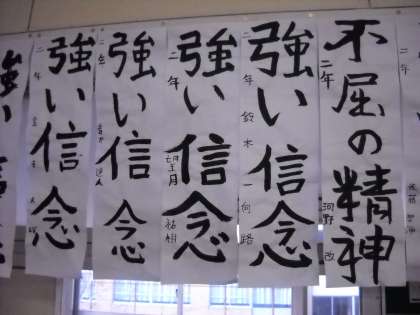 不屈の精神
二年
河野 改
強い信念
二年 鈴木一向路
強い信念
二年
望月
強い信念
二年
強い信念
二年
強い
二年